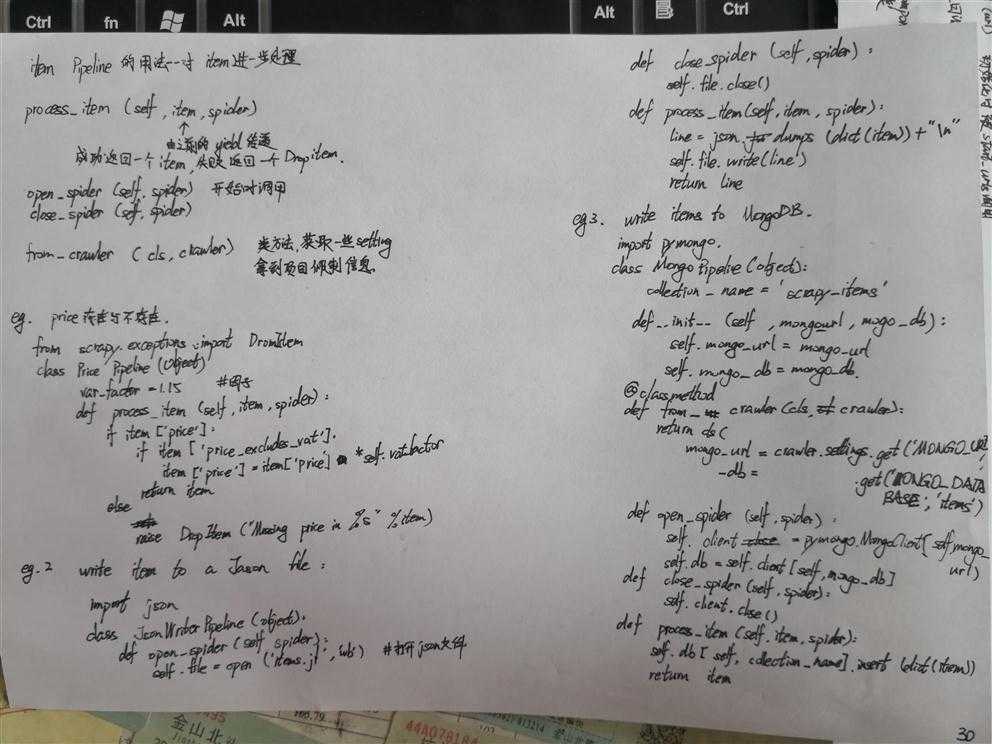 Ctrl
fn
Alt
Alt
Ctrl
item Pipeline 的用法--对 item 进一步处理
process_item (self, item, spider)
↑
由之前的 yield 传递
成功返回一个 item, 失败返回一个 Dropitem.
open_spider (self, spider) 开始时调用
close_spider (self, spider)
from_crawler (cls, crawler) 类方法, 获取一些setting
拿到项目 信息.
eg. price存在与不存在.
from scrapy.exceptions import DromItem
class Price Pipeline (object)
vat-factor = 1.15 #
def process_item (self, item, spider):
if item ['price']:
if item ['price_excludes_vat'].
item ['price'] = item['price'] * self.vatfactor
return item
else
raise DropItem ("Missing price in %s" % item)
eg.2 write item to a Jason file:
import json
class JsonWriterPipeline (object):
def open_spider (self, spider):
self.file = open ('items.jl', 'wb') #打开json文件
def close_spider (self, spider):
self.file.close()
def process_item(self, item, spider):
line = json.dumps (dict(item)) + "\n"
self.file.write(line)
return line
eg3. write items to MongoDB.
import pymongo.
class MongoPipeline(object):
collection_name = 'scrapy_items'
def __init__ (self, mongourl, mogo_db):
self.mongo_url = mongo_url
self.mongo_db = mongo_db.
@classmethod
def from_crawler(cls, crawler):
return cls(
mongo_url = crawler.settings.get('MONGO_URL',
_db = .get('MONGO_DATA
BASE', 'items')
def open_spider (self, spider):
self.client = pymongo.MongoClient[self,mongo_
url)
self.db = self.client[self,mongo_db]
def close_spider (self, spider):
self.client.close()
def process_item (self, item, spider):
self.db[self, collection_name].insert (dict(item))
return item
30
金山北
44A078184